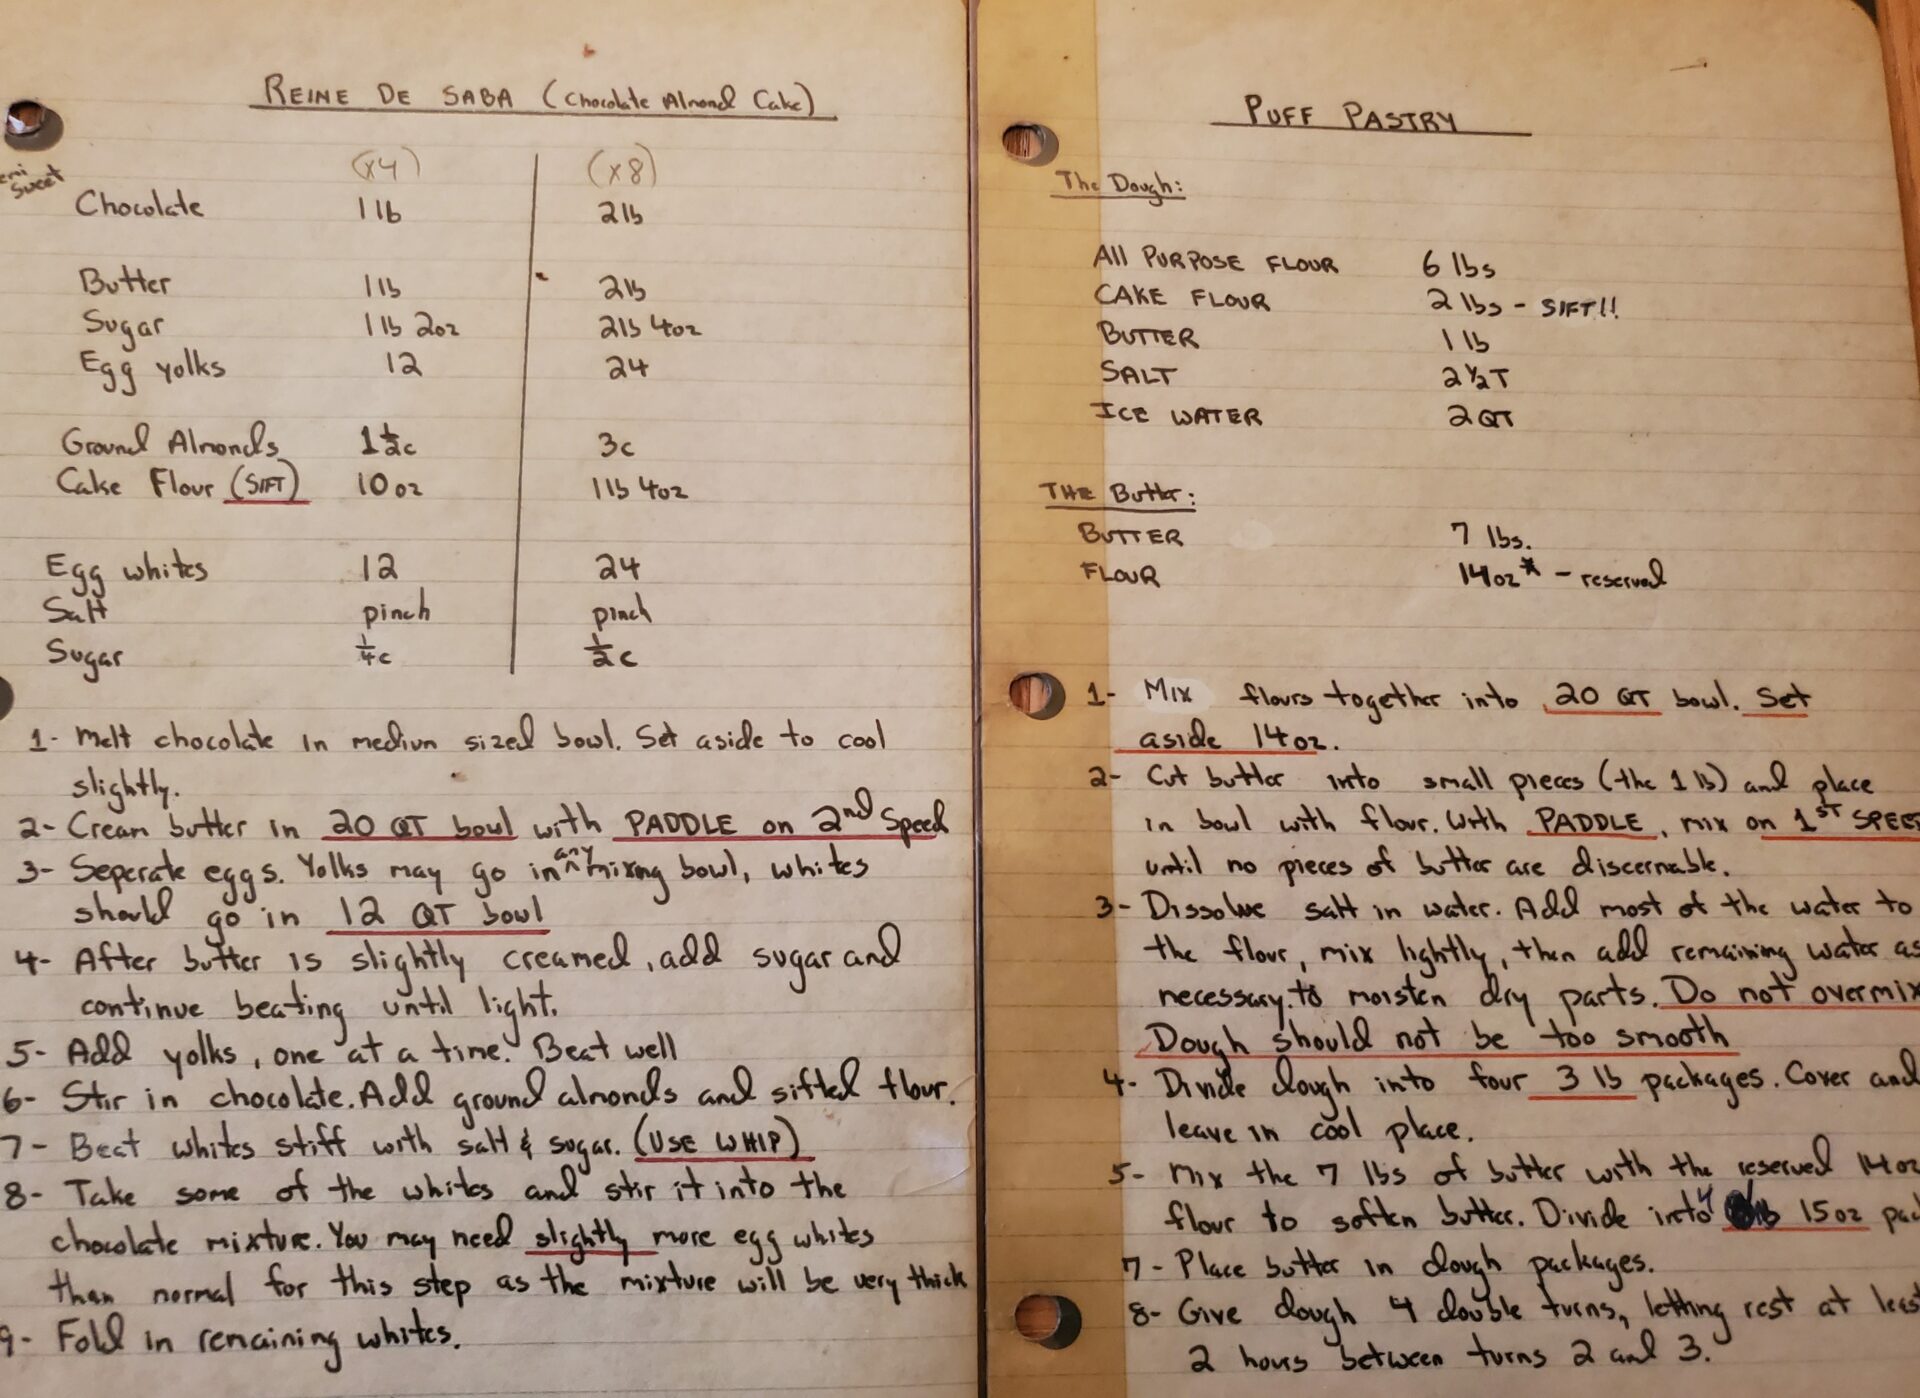 REINE DE SABA (Chocolate Almond Cake)
(x4) (x8)
sweet
Chocolate 1 lb 2 lb
Butter 1 lb 2 lb
Sugar 1 lb 2 oz 2 lb 4 oz
Egg yolks 12 24
Ground Almonds 1 1/2 c 3c
Cake Flour (SIFT) 10 oz 1 lb 4 oz
Egg whites 12 24
Salt pinch pinch
Sugar 1/4 c 1/2 c
1- Melt chocolate in medium sized bowl. Set aside to cool
slightly.
2- Cream butter in 20 QT bowl with PADDLE on 2nd Speed
3- Seperate eggs. Yolks may go in any mixing bowl, whites
should go in 12 QT bowl
4- After butter is slightly creamed, add sugar and
continue beating until light.
5- Add yolks, one at a time. Beat well
6- Stir in chocolate. Add ground almonds and sifted flour.
7- Beat whites stiff with salt & sugar. (USE WHIP)
8- Take some of the whites and stir it into the
chocolate mixture. You may need slightly more egg whites
than normal for this step as the mixture will be very thick
9- Fold in remaining whites.
PUFF PASTRY
The Dough:
All PURPOSE FLOUR 6 lbs
CAKE FLOUR 2 lbs - SIFT!!
BUTTER 1 lb
SALT 2 1/2 T
ICE WATER 2 QT
THE Butter:
BUTTER 7 lbs.
FLOUR 14oz* - reserved
1- Mix flours together into 20 QT bowl. Set
aside 14oz.
2- Cut butter into small pieces (the 1 lb) and place
in bowl with flour. With PADDLE, mix on 1ST SPEED
until no pieces of butter are discernable.
3- Dissolve salt in water. Add most of the water to
the flour, mix lightly, then add remaining water as
necessary to moisten dry parts. Do not overmix
Dough should not be too smooth
4- Divide dough into four 3 lb packages. Cover and
leave in cool place.
5- Mix the 7 lbs of butter with the reserved 14oz
flour to soften butter. Divide into 4 lb 15oz
7- Place butter in dough packages.
8- Give dough 4 double turns, letting rest at least
2 hours between turns 2 and 3.